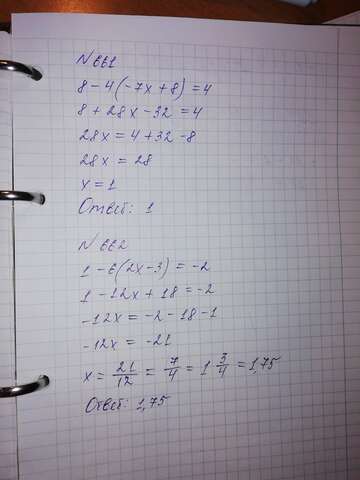 N 661
8-4(-7x+8)=4
8+28x-32=4
28x=4+32-8
28x=28
x=1
Ответ: 1
N 662
1-6(2x-3)=-2
1-12x+18=-2
-12x=-2-18-1
-12x=-21
x=21/12=7/4=1 3/4=1,75
Ответ: 1,75